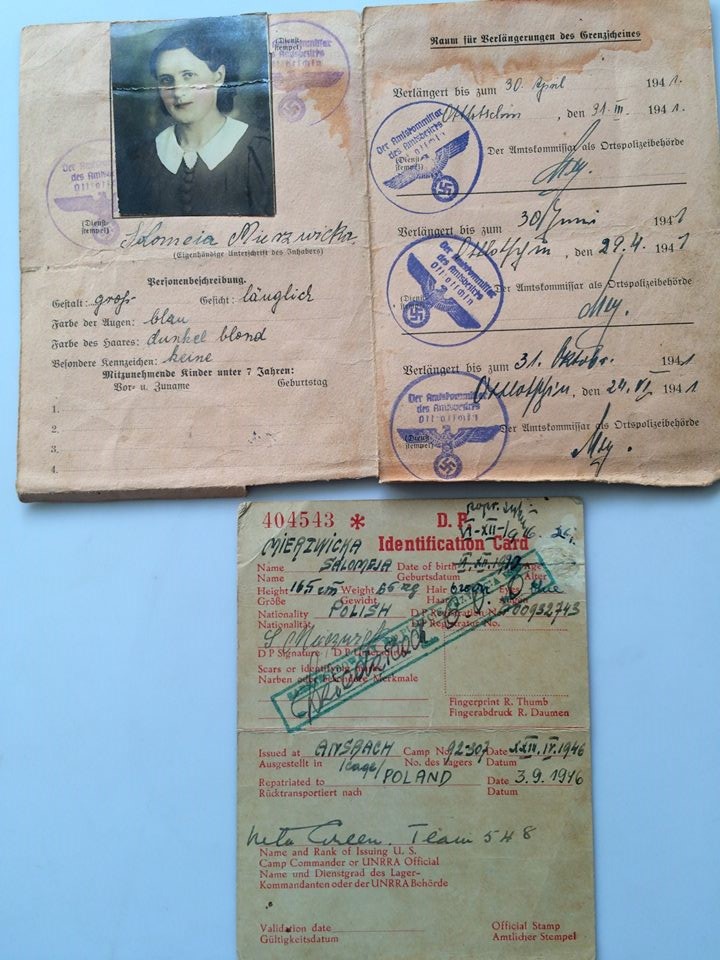 (Dienst-
stempel)
Der Amtskommissar
des Amtsbezirks
Ottlotschin
(Dienst-
stempel)
Salomeia Mierzwicka
(Eigenhändige Unterschrift des Inhabers)
Personenbeschreibung.
Gestalt: groß Gesicht: länglich
Farbe der Augen: blau
Farbe des Haares: dunkel blond
Besondere Kennzeichen: keine
Mitzunehmende Kinder unter 7 Jahren:
Vor- u. Zuname Geburtstag
1.
2.
3.
4.
Raum für Verlängerungen des Grenzscheines
Verlängert bis zum 30. April 1941.
Ottlotschin, den 31. III. 1941.
Der Amtskommissar als Ortspolizeibehörde
(Dienst-
stempel)
Der Amtskommissar
des Amtsbezirks
Ottlotschin
Verlängert bis zum 30. Juni 1941
Ottlotschin, den 29.4. 1941
Der Amtskommissar als Ortspolizeibehörde
Der Amtskommissar
des Amtsbezirks
Ottlotschin
Verlängert bis zum 31. Oktober 1941
Ottlotschin, den 24. VI 1941
Der Amtskommissar als Ortspolizeibehörde
(Dienst-
stempel)
Der Amtskommissar
des Amtsbezirks
Ottlotschin
404543 * D. P.
Identification Card
MIERZWICKA
Name SALOMEJA Date of birth Age
Name Geburtsdatum Alter
Height 165 cm Weight 65 kg Hair brown Eyes blue
Größe Gewicht Haar
Nationality POLISH D P Registration No. 00932743
Nationalität D P Registratur No.
D P Signature / D P
Scars or identifying
Narben oder besondere Merkmale
Fingerprint R. Thumb
Fingerabdruck R. Daumen
Issued at ANSBACH Camp No. 92-307 Date XXIII.IV.1946
Ausgestellt in No. des Lagers Datum
Repatriated to POLAND Date 3.9.1946
Rücktransportiert nach Datum
Green. Team 548
Name and Rank of Issuing U. S.
Camp Commander or UNRRA Official
Name und Dienstgrad des Lager-
Kommandanten oder der UNRRA Behörde
Validation date Official Stamp
Gültigkeitsdatum Amtlicher Stempel